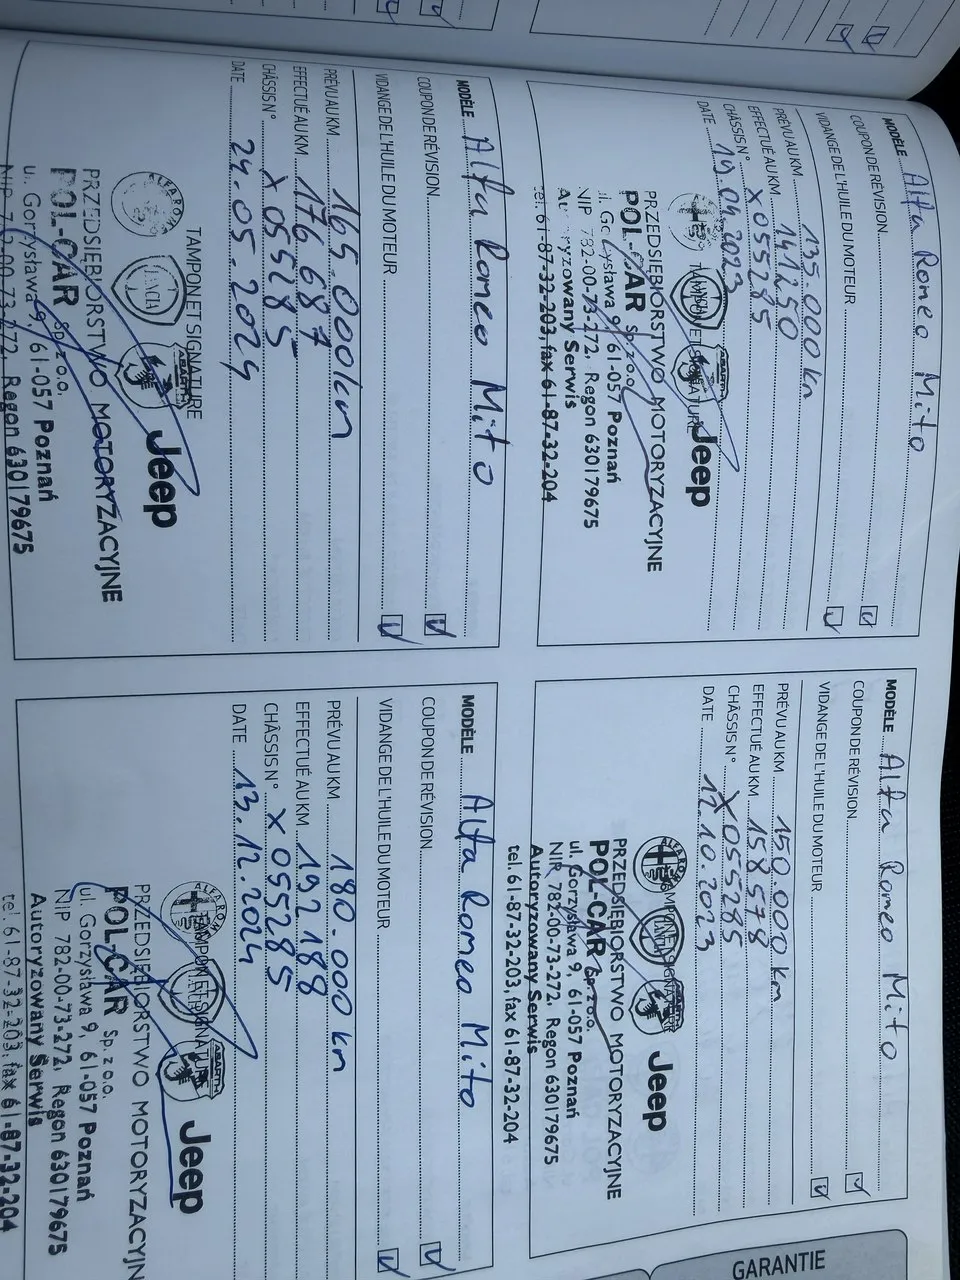 MODÈLE Alfa Romeo Mito
COUPON DE RÉVISION
VIDANGE DE L'HUILE DU MOTEUR
PRÉVU AU KM 135.000 km
EFFECTUÉ AU KM 141250
CHÂSSIS N° X055285
DATE 19.04.2023
TAMPON ET SIGNATURE
Jeep
PRZEDSIĘBIORSTWO MOTORYZACYJNE
POL-CAR Sp. z o.o.
ul. Gorzysława 9, 61-057 Poznań
NIP 782-00-73-272, Regon 630179675
Autoryzowany Serwis
tel. 61-87-32-203, fax 61-87-32-204
MODÈLE Alfa Romeo Mito
COUPON DE RÉVISION
VIDANGE DE L'HUILE DU MOTEUR
PRÉVU AU KM 150.000 km
EFFECTUÉ AU KM 158578
CHÂSSIS N° X055285
DATE 10.2023
TAMPON ET SIGNATURE
Jeep
PRZEDSIĘBIORSTWO MOTORYZACYJNE
POL-CAR Sp. z o.o.
ul. Gorzysława 9, 61-057 Poznań
NIP 782-00-73-272, Regon 630179675
Autoryzowany Serwis
tel. 61-87-32-203, fax 61-87-32-204
MODÈLE Alfa Romeo Mito
COUPON DE RÉVISION
VIDANGE DE L'HUILE DU MOTEUR
PRÉVU AU KM 165.000 km
EFFECTUÉ AU KM 176687
CHÂSSIS N° X055285
DATE 24.05.2024
TAMPON ET SIGNATURE
ALFA ROMEO LANCIA ABARTH Jeep
PRZEDSIĘBIORSTWO MOTORYZACYJNE
POL-CAR Sp. z o.o.
ul. Gorzysława 9, 61-057 Poznań
NIP 782-00-73-272, Regon 630179675
MODÈLE Alfa Romeo Mito
COUPON DE RÉVISION
VIDANGE DE L'HUILE DU MOTEUR
PRÉVU AU KM 180.000 km
EFFECTUÉ AU KM 192188
CHÂSSIS N° X055285
DATE 13.12.2024
TAMPON ET SIGNATURE
ALFA ROMEO ABARTH Jeep
PRZEDSIĘBIORSTWO MOTORYZACYJN
POL-CAR Sp. z o.o.
ul. Gorzysława 9, 61-057 Poznań
NIP 782-00-73-272, Regon 630179675
Autoryzowany Serwis
tel. 61-87-32-203, fax 61-87-32-204
GARANTIE